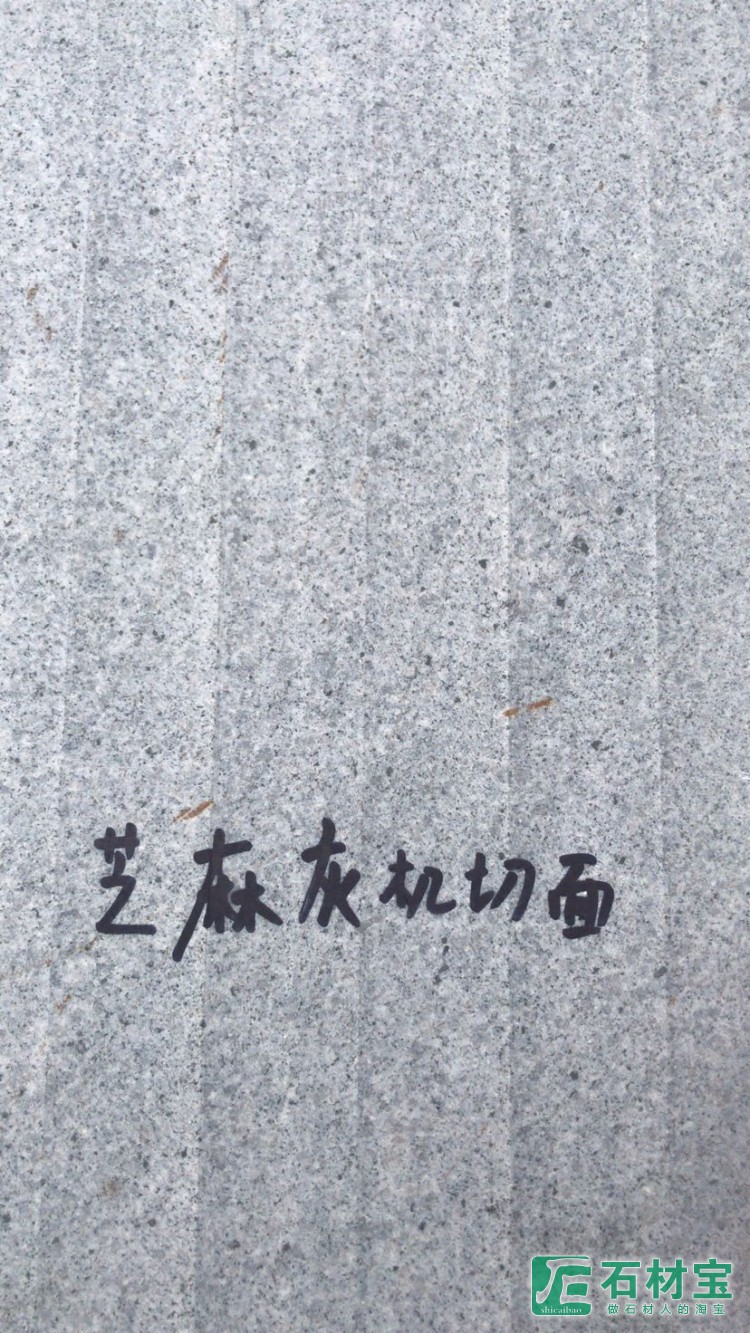 芝麻灰机切面
石材宝
shicaibao
做石材人的淘宝